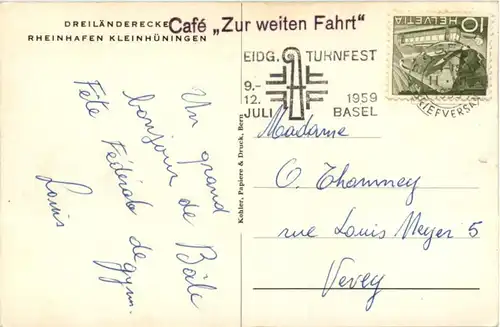 DREILÄNDERECKE
RHEINHAFEN KLEINHÜNINGEN
Café „Zur weiten Fahrt"
EIDG. TURNFEST
9.-
12. 1959
JULI BASEL
HELVETIA
10
BRIEFVERSAND
Un grand
bonjour de Bâle
Fête Fédérale de gym.
Louis
Kohler, Papiere & Druck, Bern
Madame
O. Thommey
rue Louis Meyer 5
Vevey